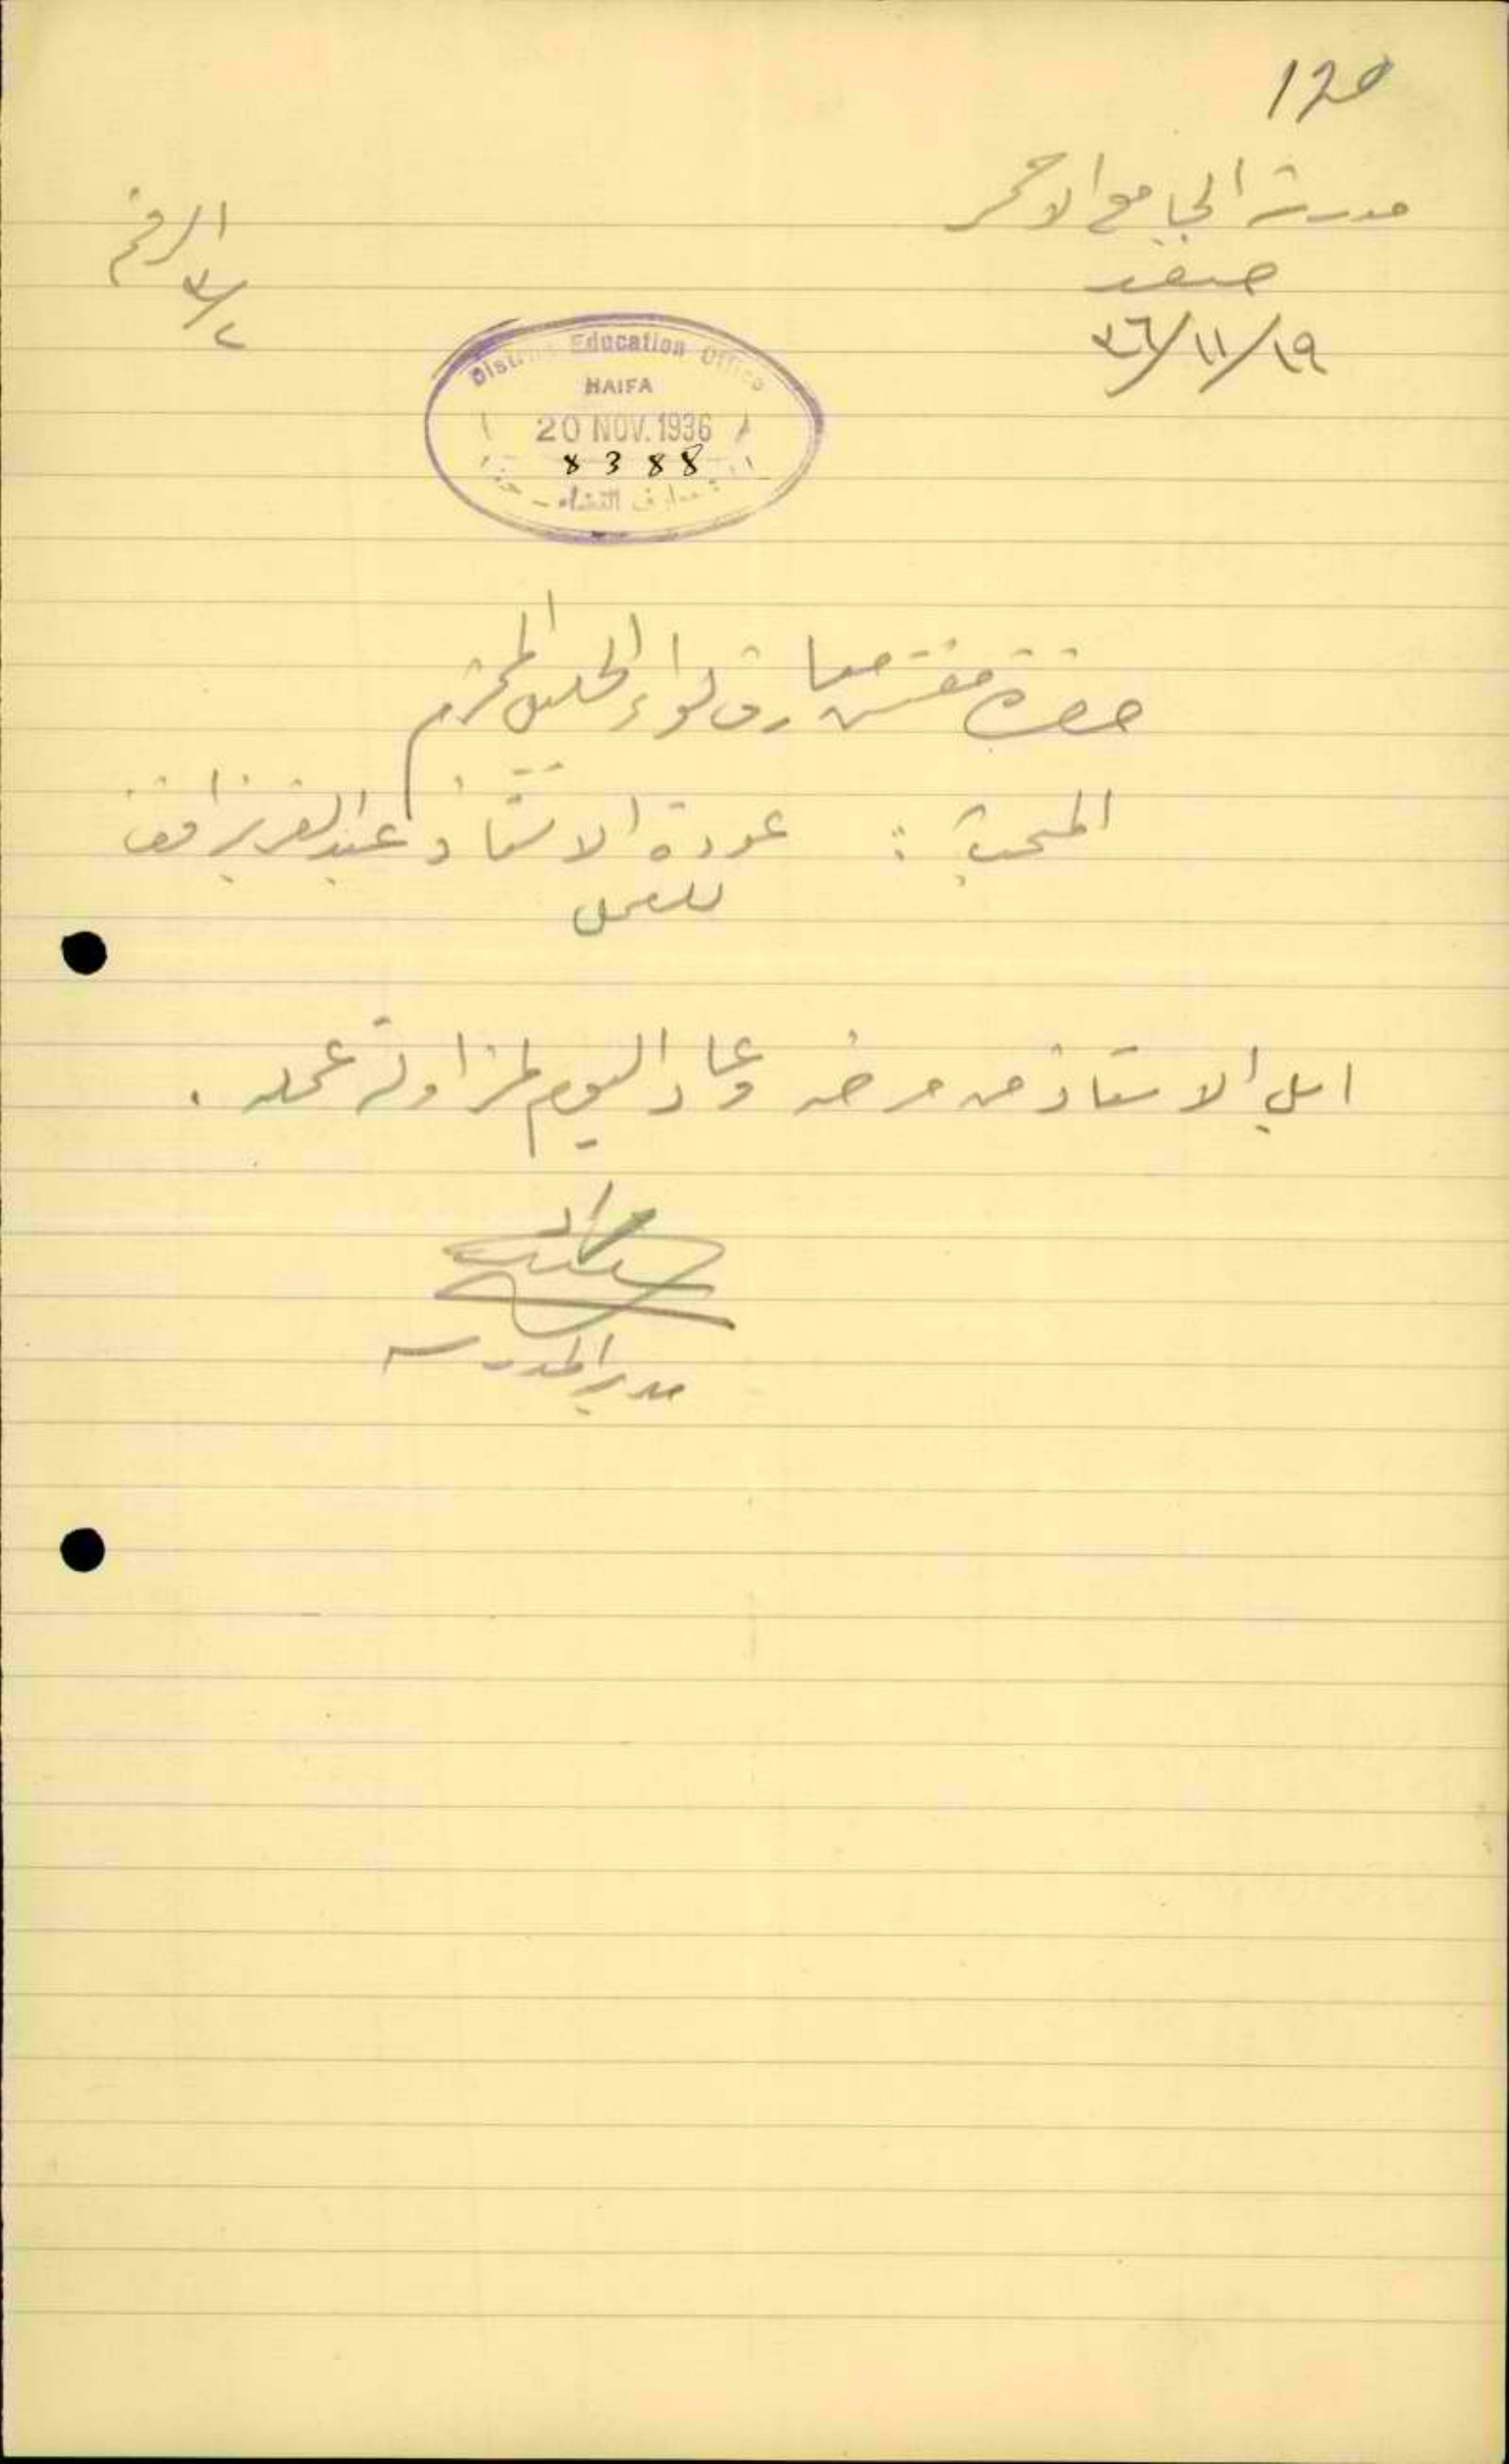 120
مدرسة الجامع الاحمر
صفد
١٩/١١/٣٦
الرقم
٣/٢
District Education Office
HAIFA
20 NOV. 1936
8388
معارف اللواء - حيفا
حضرة مفتش معارف لواء الجليل المحترم
المبحث : عودة الاستاذ عبد العزيز
للعمل
ابل الاستاذ من مرضه وعاد اليوم لمزاولة عمله .
مدير المدرسة